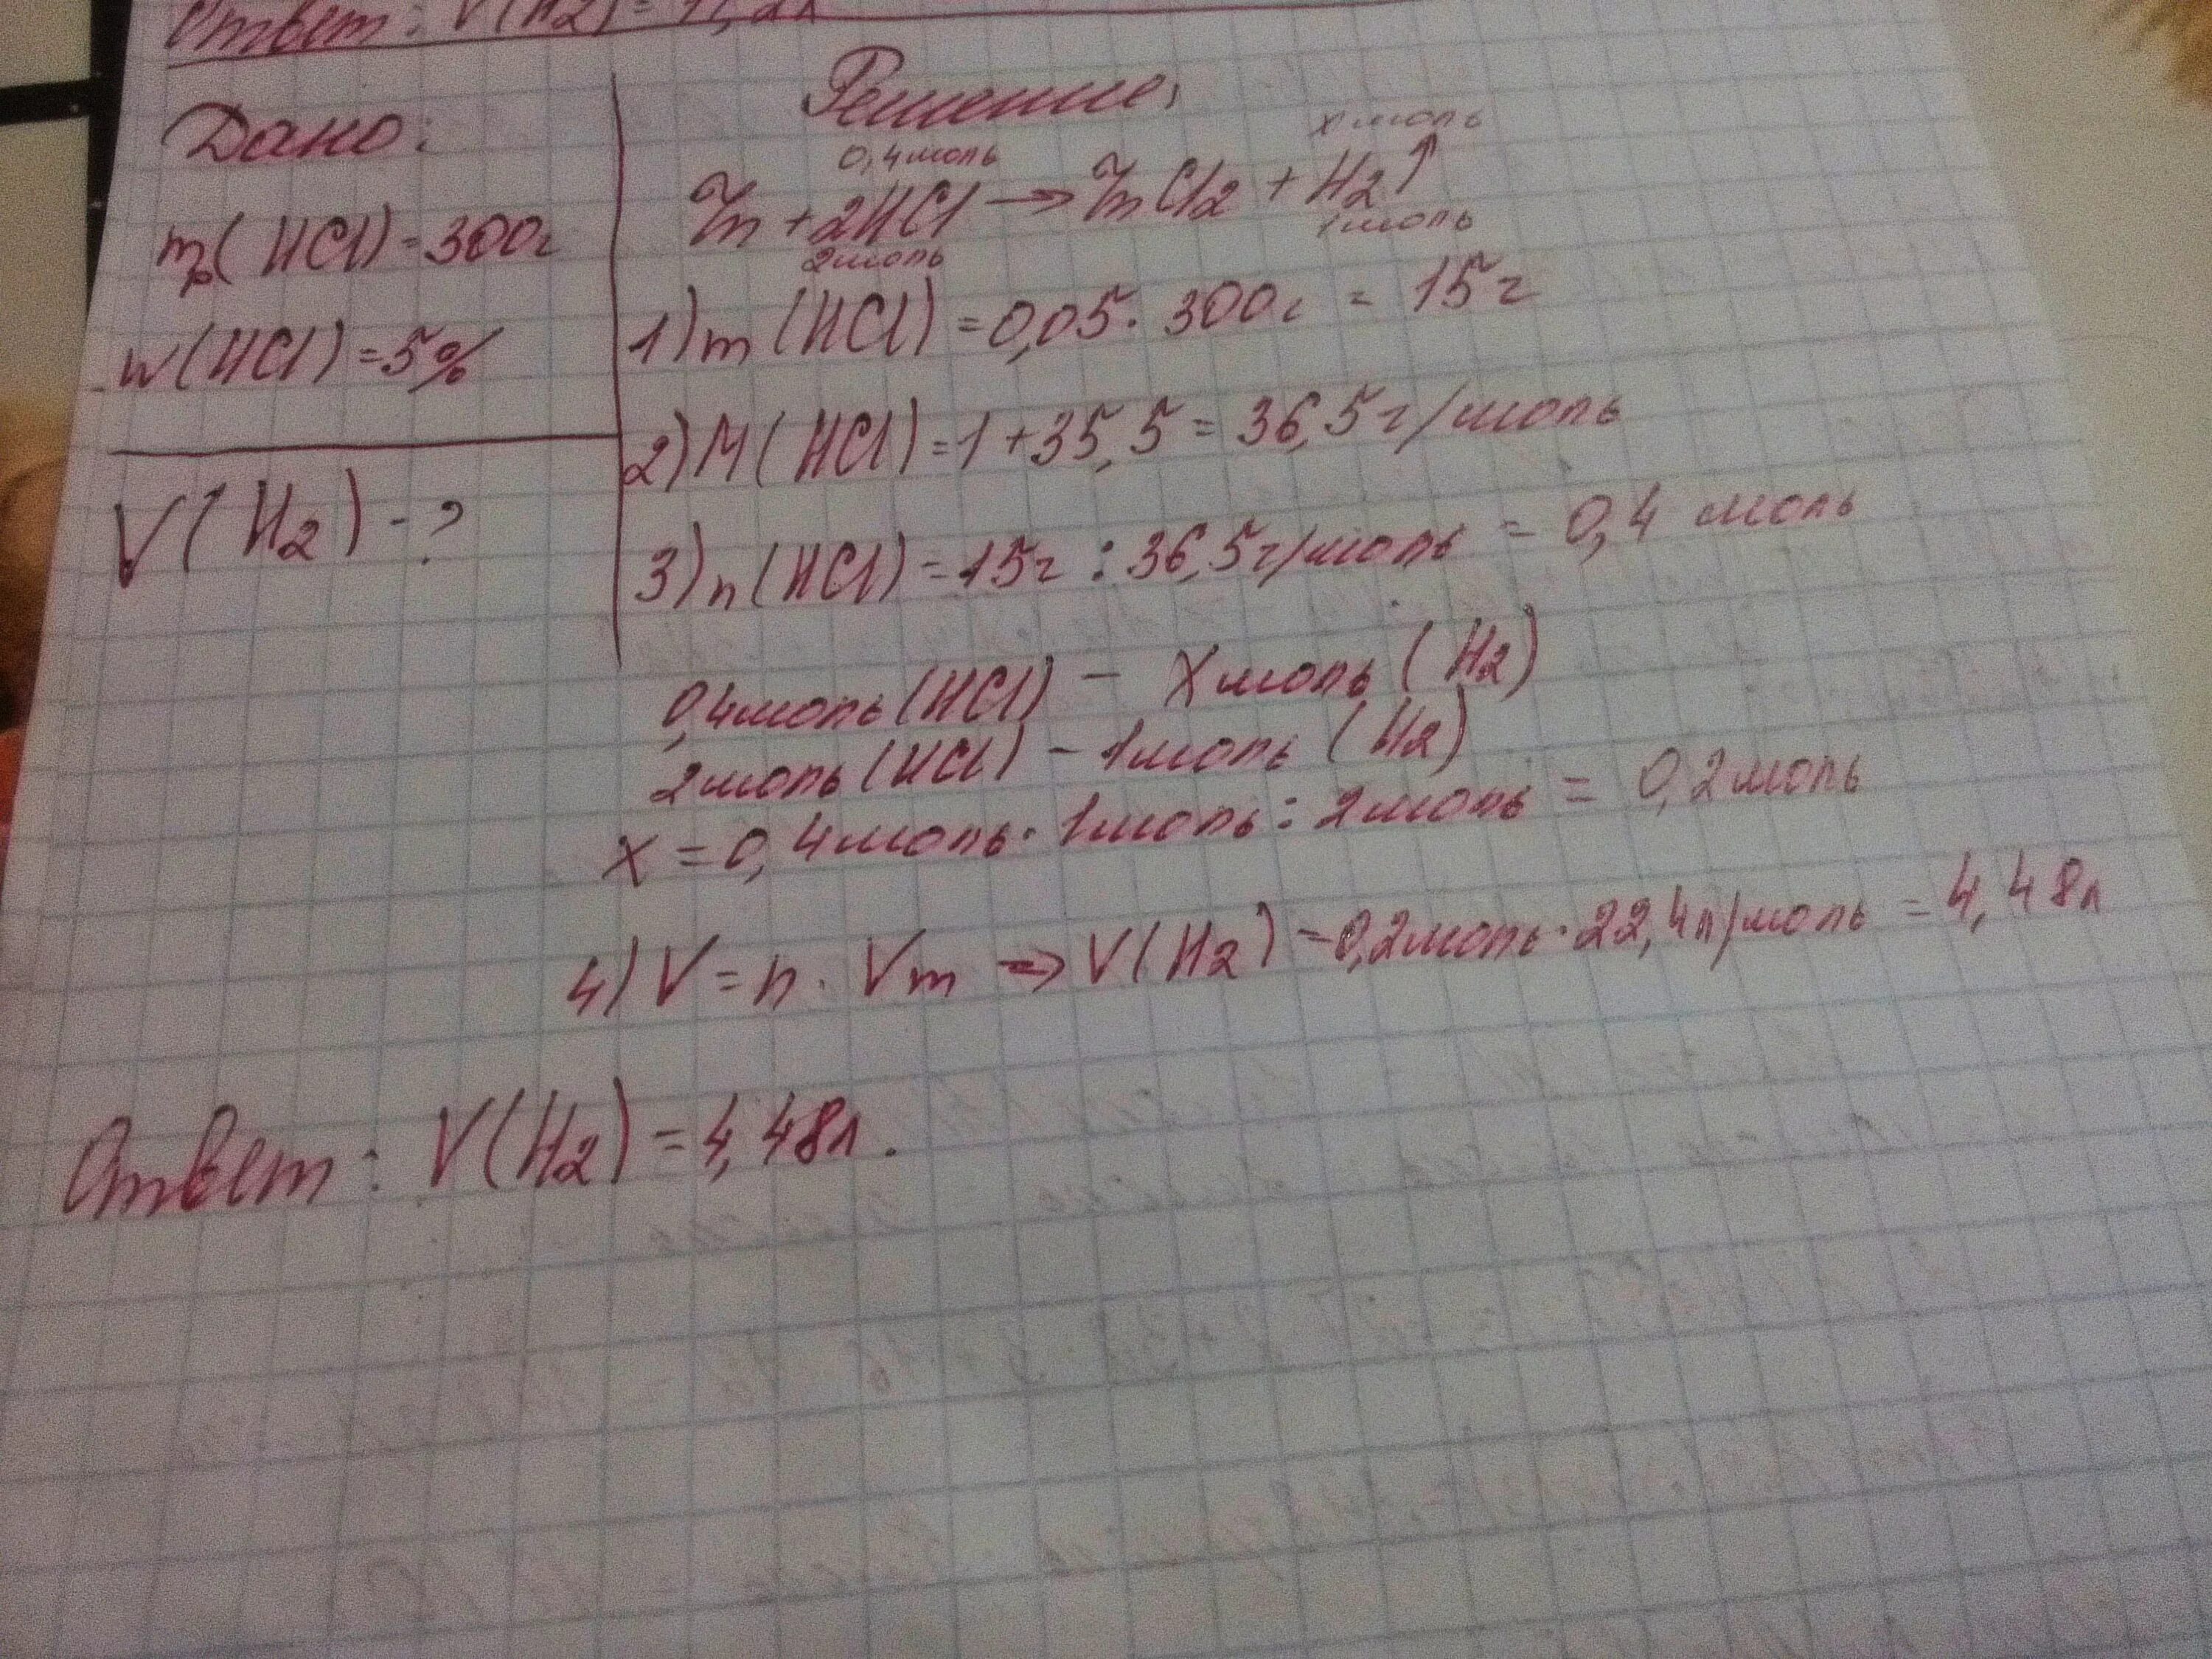 Ответ: V(H2) = 11,2л
Дано:
mр(HCl) = 300г
w(HCl) = 5%
V(H2) - ?
Решение,
0,4моль x моль
Zn + 2HCl → ZnCl2 + H2↑
2моль 1моль
1) m(HCl) = 0,05 · 300г = 15г
2) M(HCl) = 1 + 35,5 = 36,5г/моль
3) n(HCl) = 15г : 36,5г/моль = 0,4 моль
0,4моль(HCl) - X моль(H2)
2моль(HCl) - 1моль(H2)
X = 0,4моль · 1моль : 2моль = 0,2моль
4) V = n · Vm => V(H2) = 0,2моль · 22,4л/моль = 4,48л
Ответ: V(H2) = 4,48л.